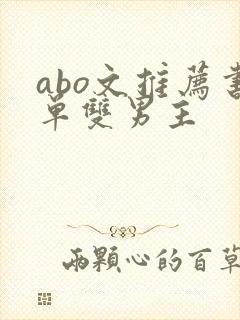 abo文推薦書
單雙男主
兩顆心的百草